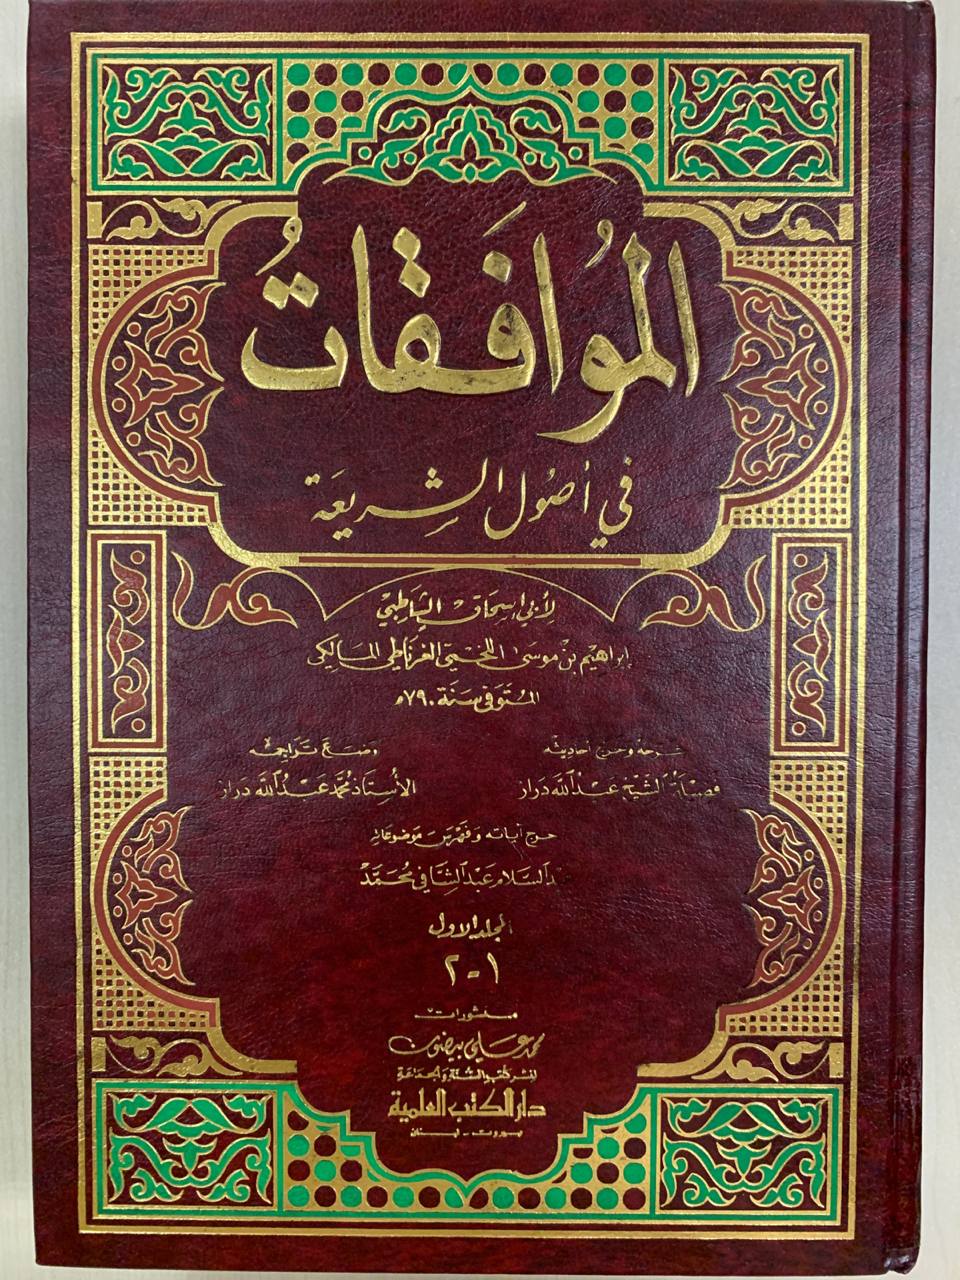 الموُافَقاتُ
في أصُول الشريعَة
لأبي اسحاق الشاطبي
إبراهيم بن موسى اللخمي الغرناطي المالكي
المتوفى سنَة ٧٩٠ه
شرحه وخرج أحاديثه
فضيلة الشيخ عبد الله دراز
وضع تراجمه
الأستاذ محمد عبد الله دراز
خرج آياته وفهرس موضوعاته
عبد السلام عبد الشافي محمد
المجلد الاول
١-٢
منشورات
محمد علي بيضون
لنشر كتب السنة والجماعة
دار الكتب العلمية
بيروت - لبنان